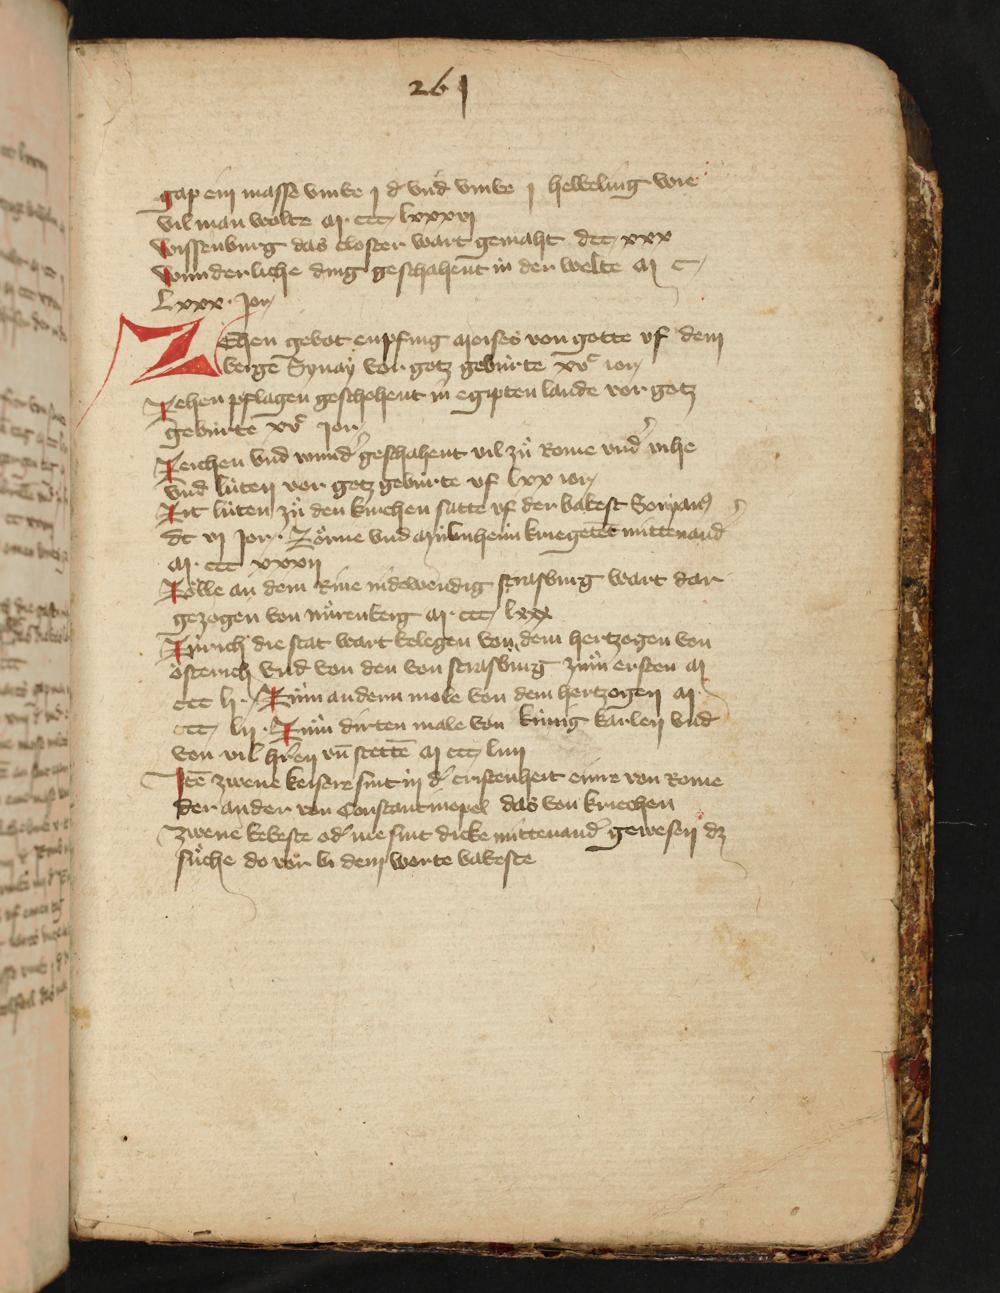 261
gap ein masse vmbe j d᷑ vnd vmbe j helbeling wie
vil man wolte M ccc lxxxvj
Wissenburg das closter wart gemaht dcc xxx
Wunderliche ding geschahent in der welte M c
lxxx jor
ZEhen gebot enpfing Moises von gotte vf dem
berge Synay vor gotz gebürte xvͨ ior
Zehen pflagen geschehent in egipten lande vor gotz
gebürte xvͨ jor
Zeichen vnd wund᷑ geschahent vil zů Rome vnd᷑ vihe
vnd lüten vor gotz gebürte vf lxx ior
Zit lüten zů den kirchen satte vf der babest
dc vj jor Zörne vnd Mülnheim kriegetent mittenand
M ccc xxxij
Zölle an dem Rine nidewendig strasburg wart dar
gezogen von nürenberg M ccc lxx
Zürich die stat wart belegen von dem hertzogen von
österich vnd von den von strasburg zům ersten M
ccc lj Zům andern mole von dem hertzogen M
ccc lij Zům dirten male von künig karlen vnd
von vil h᷑ren vn̄ stetten̄ M ccc liiij
Itē zwene keisere sint in d᷑ cristenheit einre von Rome
der ander von Constantinopel das von kriechen
Zwene bebeste od᷑ me sint dicke mittenand᷑ gewesen dz
sůche do vor bi dem worte babeste